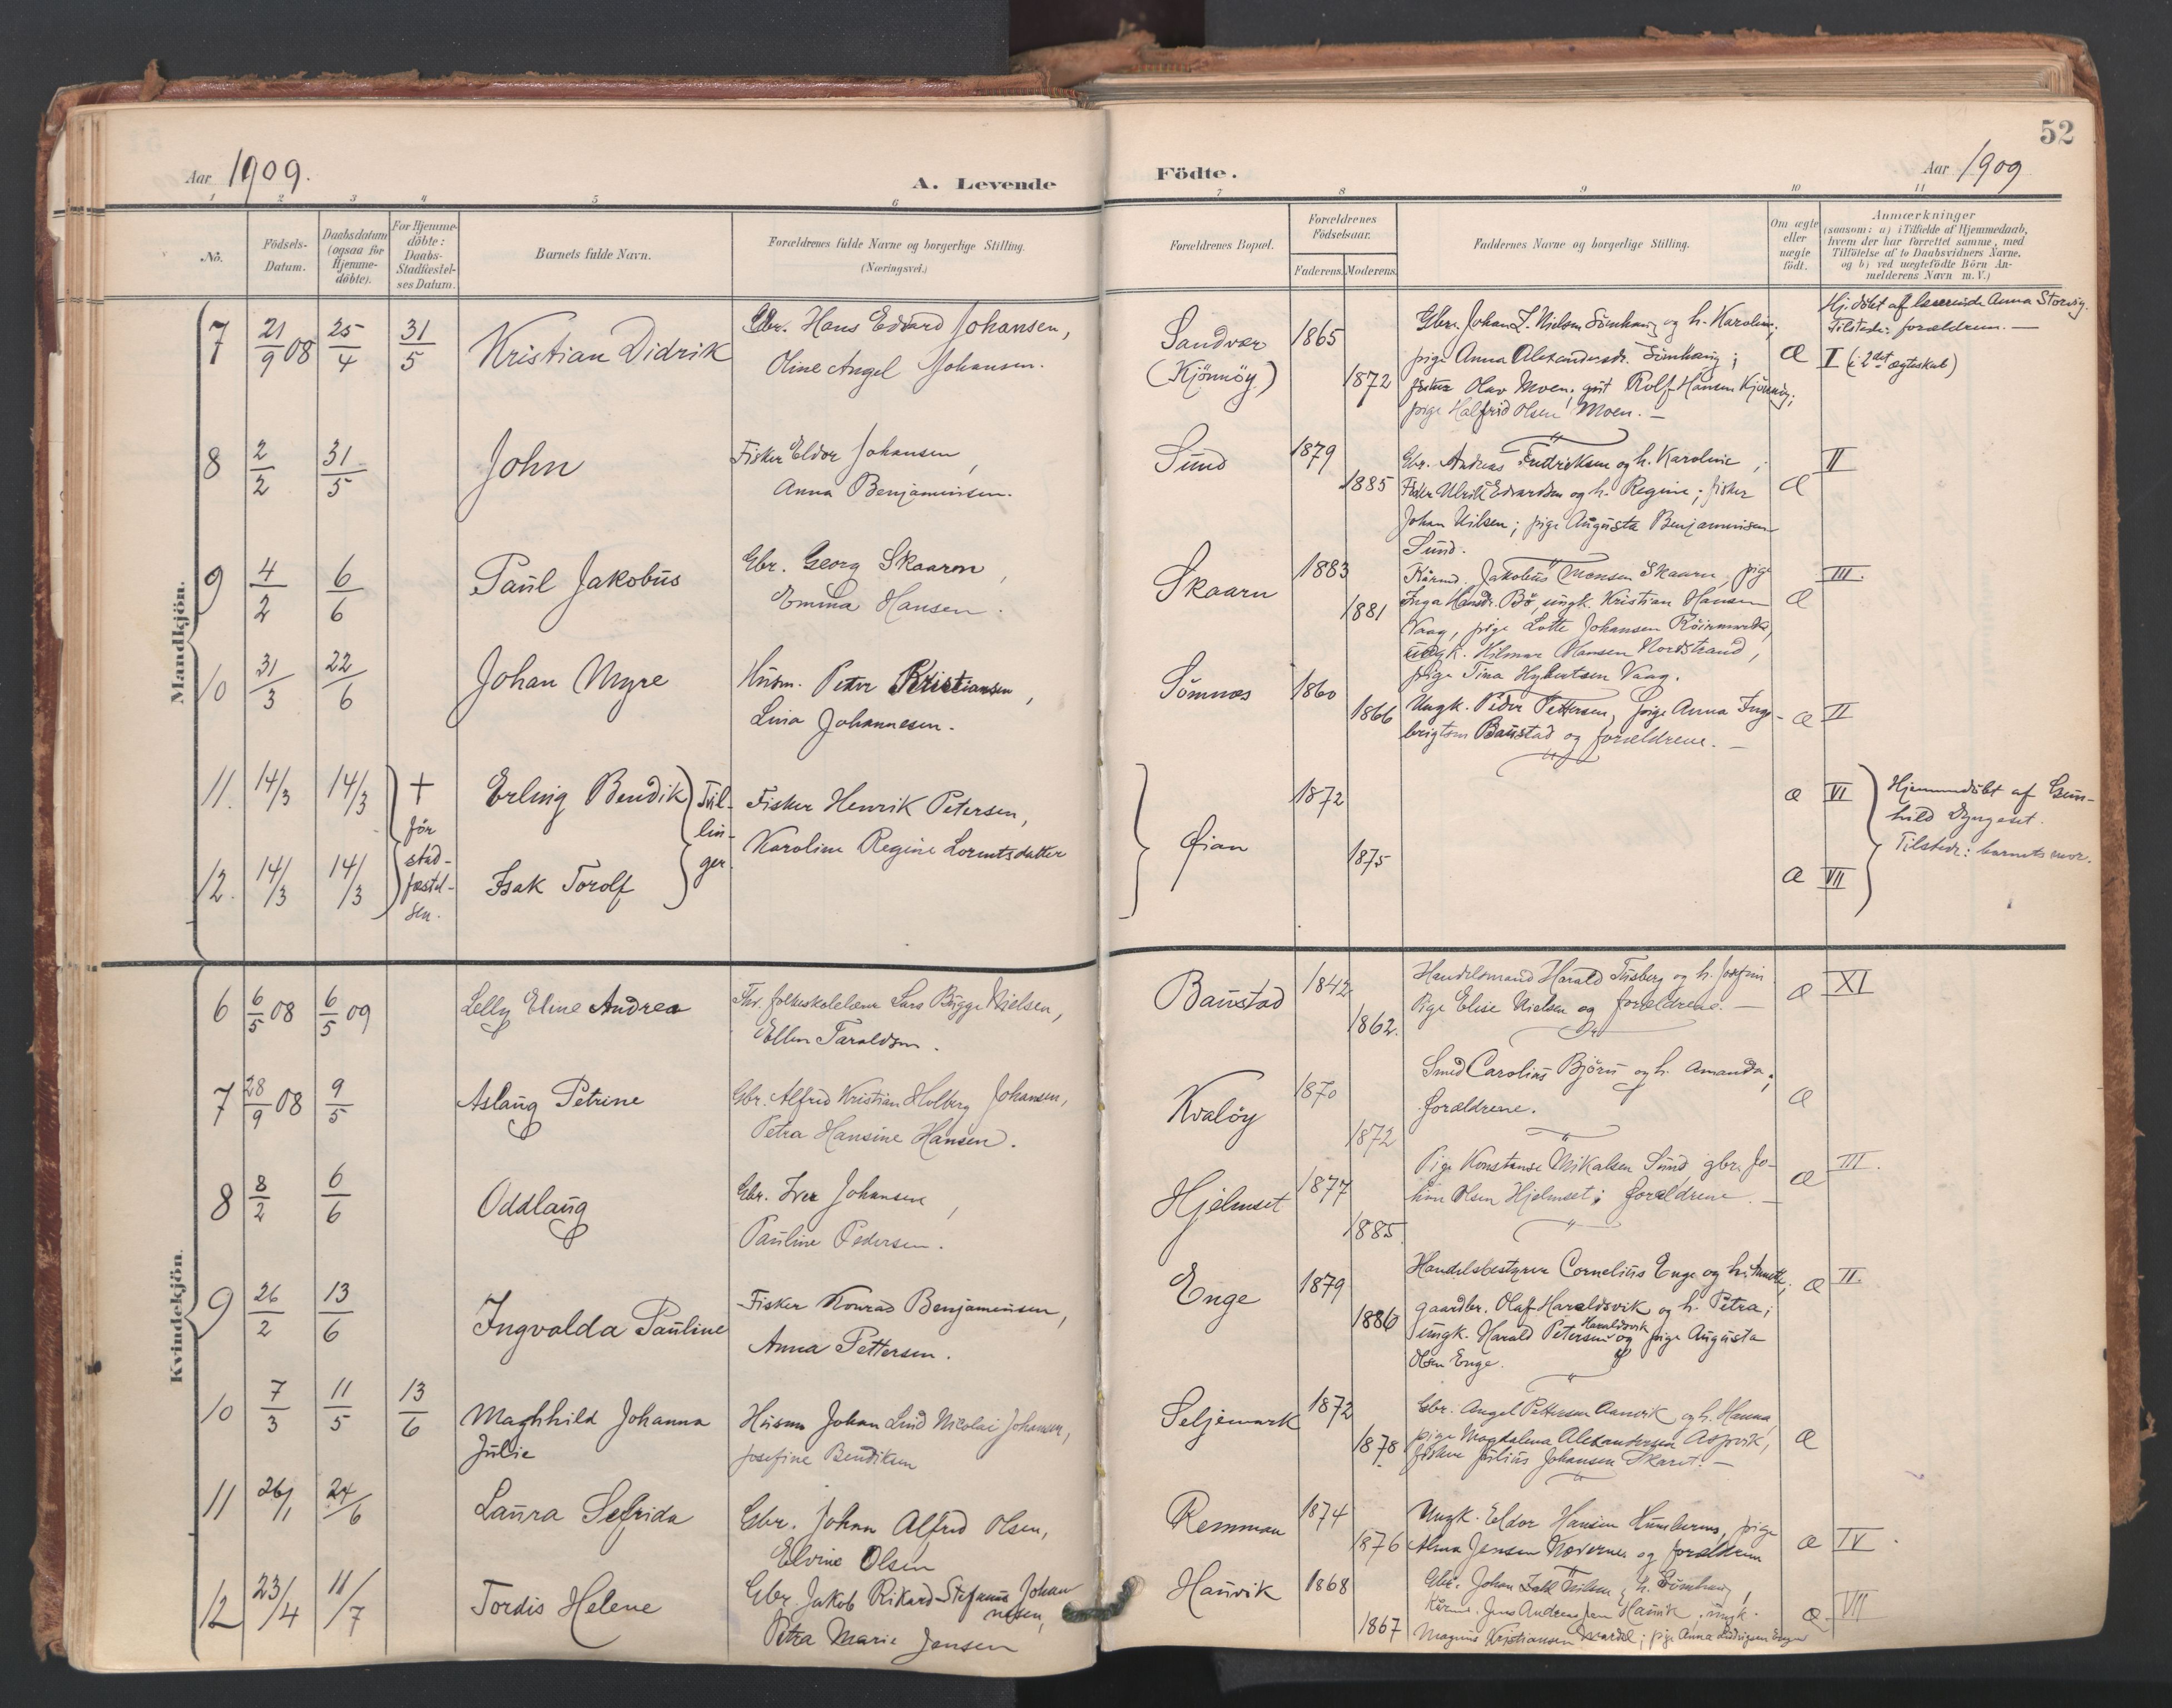 52
Aar 1909.
A. Levende
Födte.
Aar 1909
1 2 3 4 5 6 7 8 9 10 11
No.
Födsels-
Datum.
Daabsdatum
(ogsaa for
Hjemme-
döbte).
For Hjemme-
döbte:
Daabs-
Stadfæstel-
ses Datum.
Barnets fulde Navn.
Forældrenes fulde Navne og borgerlige Stilling.
(Næringsvei.)
Forældrenes Bopæl.
Forældrenes
Födselsaar.
Faderens. Moderens.
Faddernes Navne og borgerlige Stilling.
Om ægte
eller
uægte
födt.
Anmærkninger
(saasom: a) i Tilfælde af Hjemmedaab,
hvem der har forrettet samme, med
Tilföielse af to Daabsvidners Navne,
og b) ved uægtefödte Börn An-
melderens Navn m. V.)
Mandkjön.
7 21/9 08 25/4 31/5 Kristian Didrik
Gbr. Hans Edvard Johansen,
Oline Angel Johansen.
Sandvær
(Kjönnöy)
1865
1872
og h. Karoline;
pige Anna
fisker Olav Moen; gut Rolf Hansen
pige Halfrid Olsen Moen. —
æ
Hj. döbt af Anna Storvig.
Tilstede: forældrene. —
I (i 2det ægteskab)
8 2/2 31/5 John
Fisker Eldor Johansen,
Anna Benjaminsen.
Sund
1879
1885
Gbr. Andreas Fredriksen og h. Karoline;
Fisker Ulrik Edvardsen og h. Regine; fisker
Johan Nilsen; pige Augusta Benjaminsen
Sund.
æ
II
9 4/2 6/6 Paul Jakobus
Gbr. Georg Skaaron,
Emma Hansen.
Skaarn
1883
1881
Kårmd. Jakobus Monsen Skaarn, pige
Inga Hansdr. Bö, ungk. Kristian Hansen
Vaag, pige Lotte Johansen
ungk. Hilmar Hansen Nordstrand,
pige Tina Vaag.
æ
III.
10 31/3 22/6 Johan Myre
Husm. Peder Kristiansen,
Lina Johannesen.
Sömnes
1860
1866
Ungk. Peder Pettersen, pige Anna Inge-
brigtsen Baustad og forældrene. —
æ
II
11. 14/3 14/3 Erling Bendik
12. 14/3 14/3 Isak Torolf
+
för
stad-
fæstel-
sen.
Tvil-
lin-
ger.
Fisker Henrik Petersen,
Karoline Regine Lorentsdatter
Øian
1872
1875
æ VI
æ VII
Hjemmedöbt af Gun-
hild Dyngeset.
Tilstede: barnets mor.
Kvindekjön.
6 6/5 08 6/5 09 Lelly Eline Andrea
folkeskolelærer Lars Bugge Nielsen,
Ellen Taraldsen.
Baustad
1842
1862.
Handelsmand Harald og h. Josefine
Pige Elise Nielsen og forældrene. —
æ
XI
7 28/9 08 9/5 Aslaug Petrine
Gbr. Alfred Kristian Holberg Johansen,
Petra Hansine Hansen.
Kvalöy
1870
1872
Smed Carolius Björn og h. Amanda;
forældrene.
æ
8 8/2 6/6 Oddlaug
Gbr. Iver Johansen,
Pauline Pedersen.
Hjelmset
1877
1885
Pige Konstanse Mikalsen Sund, gbr. Jo-
han Olsen Hjelmset; forældrene. —
æ
III.
9 26/2 13/6 Ingvalda Pauline
Fisker Konrad Benjaminsen,
Anna Pettersen.
Enge
1879
1886
Handelsbestyrer Cornelius Enge og h. Anette;
gaardbr. Olaf Haraldsvik og h. Petra;
ungk. Harald Petersen Haraldsvik og pige Augusta
Olsen Enge.
æ
II.
10 7/3 11/5 13/6 Maghhild Johanna
Julie
Husm Johan Lind Nicolai Johansen,
Josefine Bendiksen
Seljemark
1872
1878
Gbr. Angel Pettersen Aanvik og h. Hanna,
pige Magdalena Alexandersen Aspvik,
fisker Julius Johansen Skaret. —
æ
11 26/1 24/6 Laura Sefrida
Gbr. Johan Alfred Olsen,
Elvine Olsen
Remman
1874
1876
Ungk. Eldor Hansen pige
Alma Jensen og forældrene
æ
IV
12 23/4 11/7 Tordis Helene
Gbr. Jakob Rikard Stefanus Johan
nesen,
Petra Marie Jensen
Hauvik
1868
1867
Gbr. Johan
Kårmd. Jens Hauvik; ungk.
Magnus Kristiansen pige Anna
æ
VII